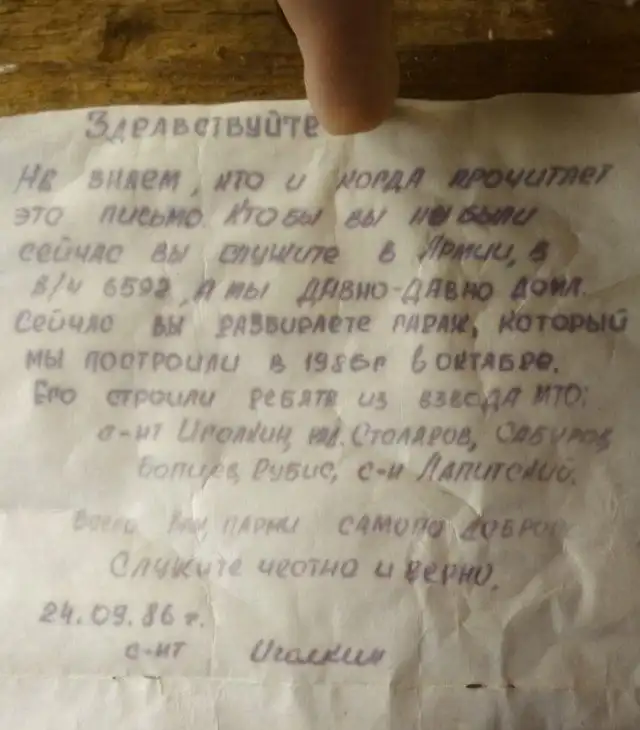 Здравствуйте
Не знаем, кто и когда прочитает
это письмо. Кто бы вы не были
сейчас вы служите в Армии, в
в/ч 6592, а мы давно-давно дома.
Сейчас вы разбираете гараж, который
мы построили в 1986г в октябре.
Его строили ребята из взвода ИТО:
с-нт Иголкин, мл. Столяров, Сабуров,
Рубис, с-н Лапитский.
Всего Вам парни самого доброго
Служите честно и верно.
24.09.86 г.
с-нт Иголкин